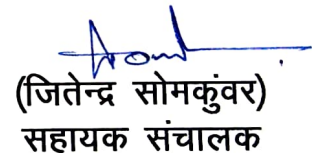 (जितेन्द्र सोमकुंवर)
सहायक संचालक